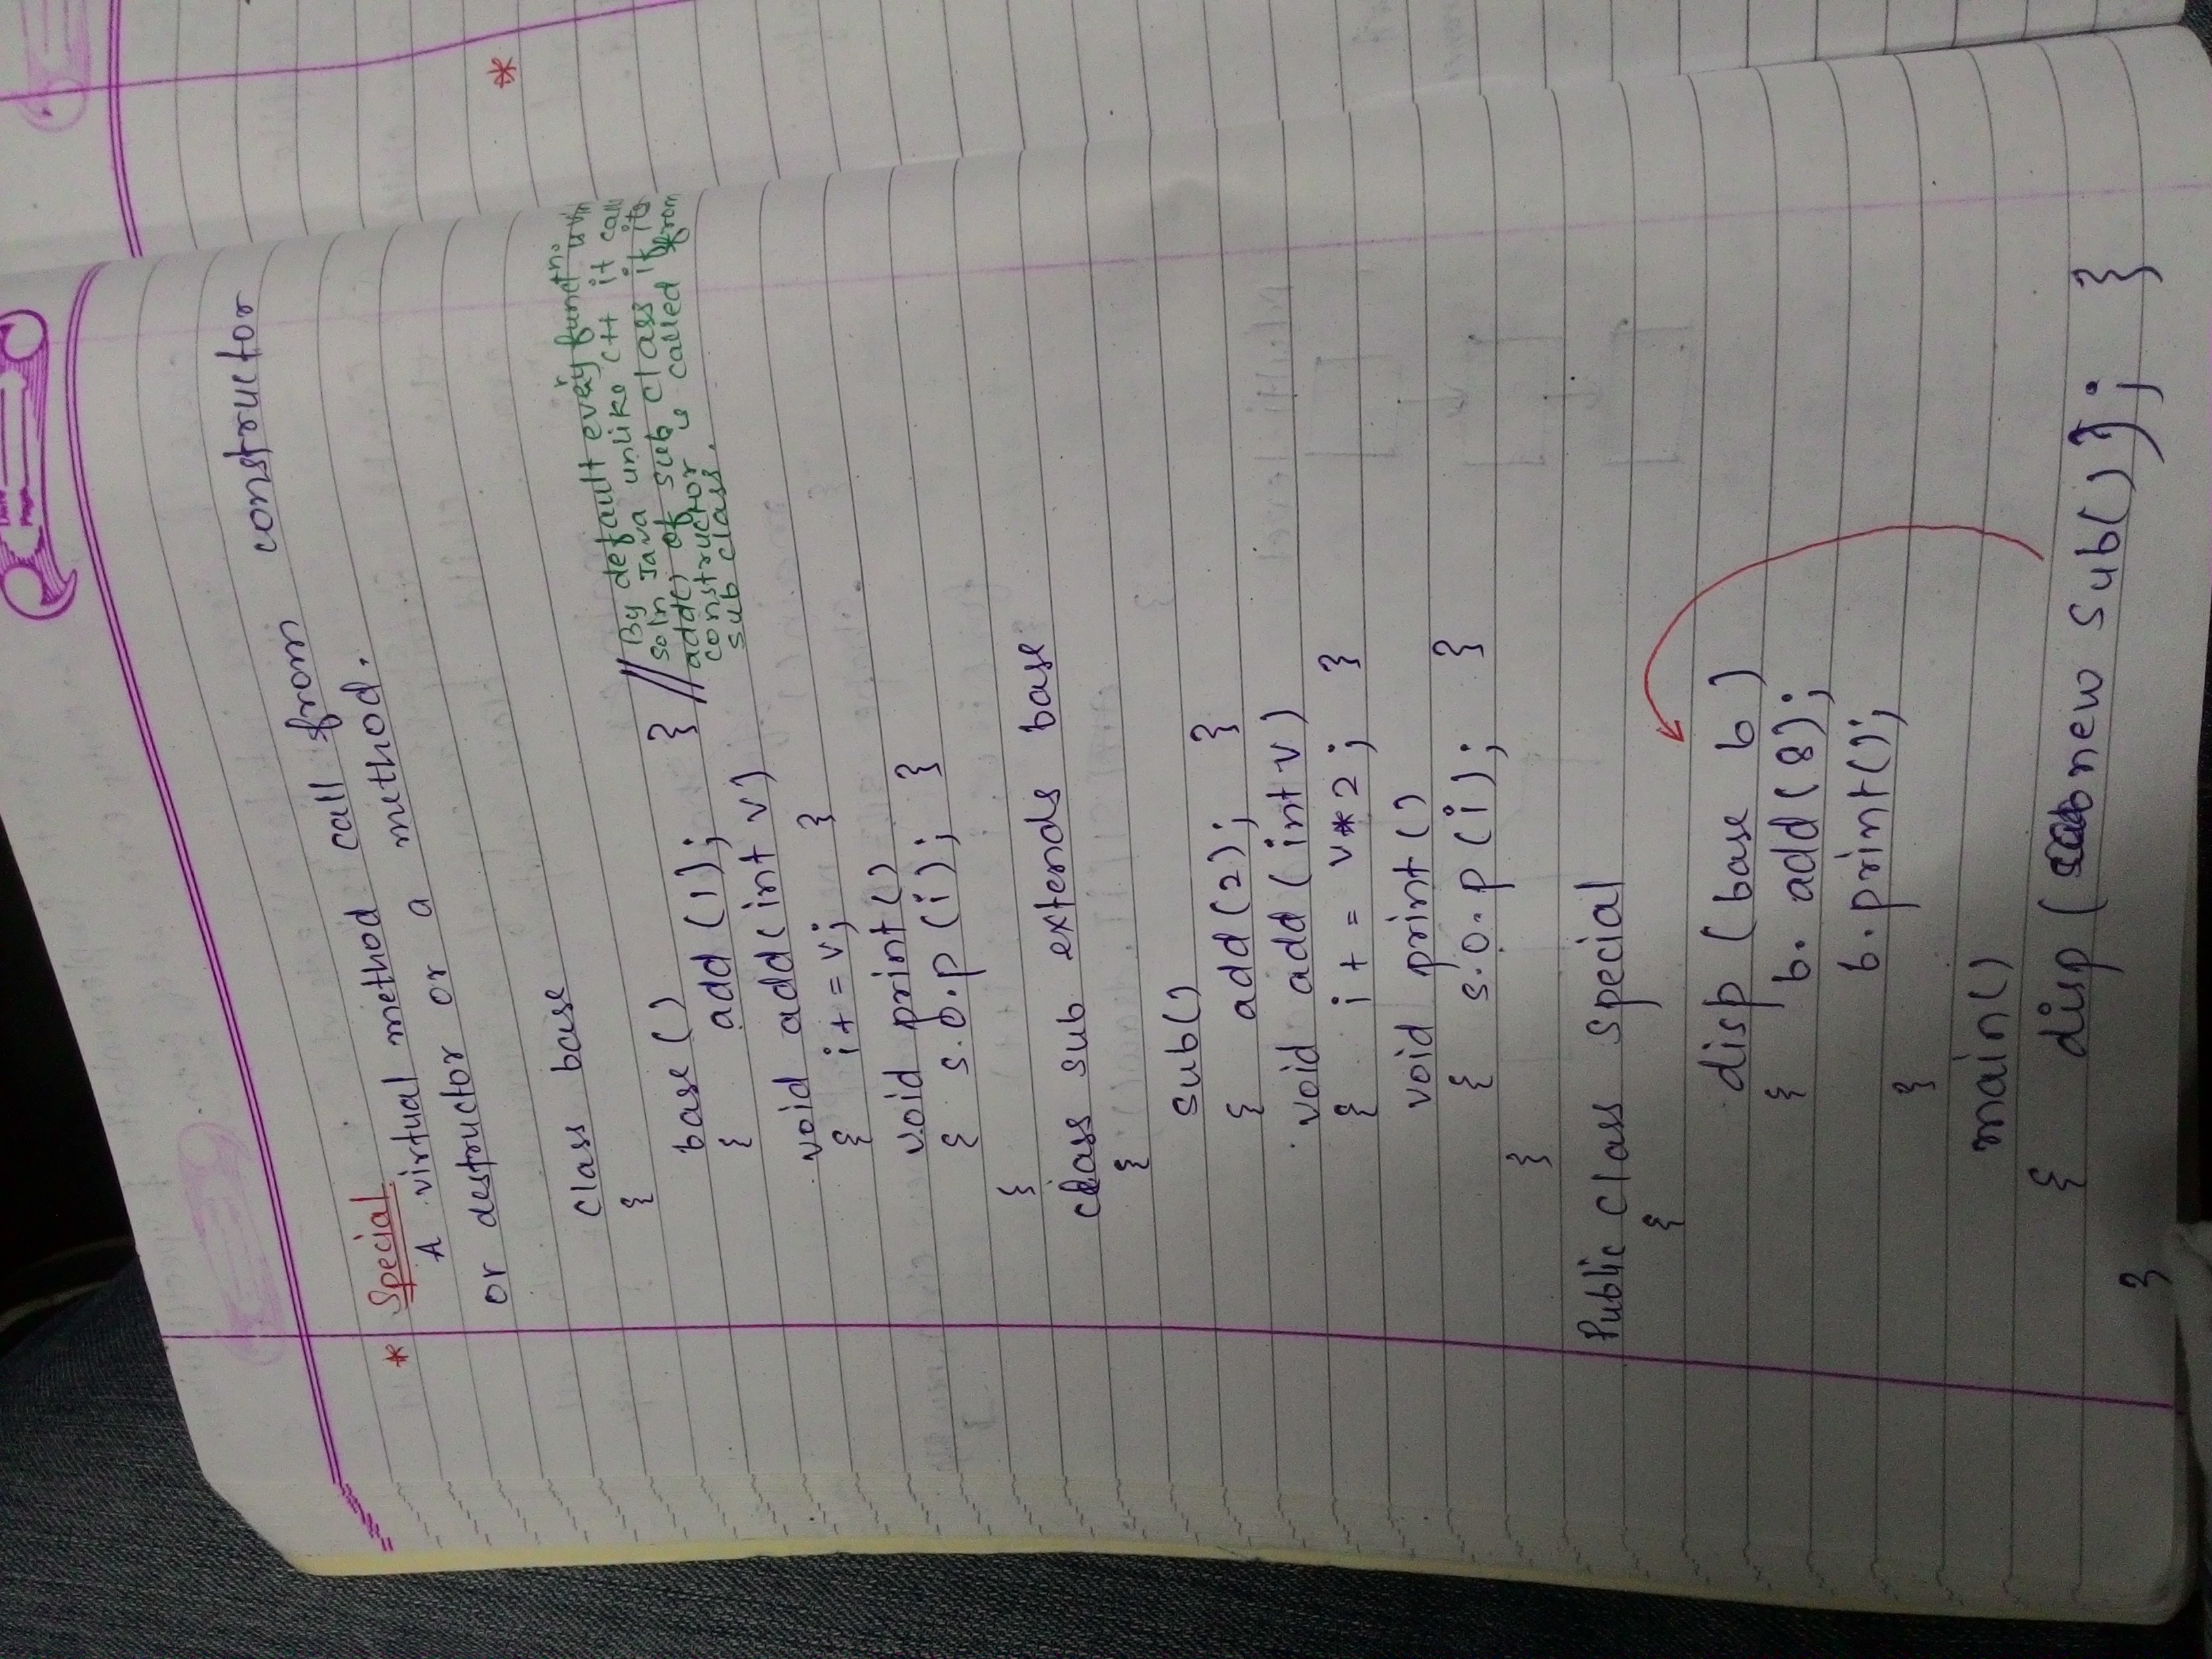 Date
Page
* Special
A virtual method call from constructor
or destructor or a method.
class base
{
base()
{ add(1); } // By default every functn. is
so in Java unlike C++ it calls
add() of sub class if its
constructor is called from
sub class.
void add(int v)
{ i+=v; }
void print()
{ s.o.p(i); }
}
class sub extends base
{
sub()
{ add(2); }
void add(int v)
{ i+= v*2; }
void print()
{ s.o.p(i); }
}
Public class special
{
disp (base b)
{ b. add(8);
b.print();
}
main()
{ disp (new sub()); }
}
*